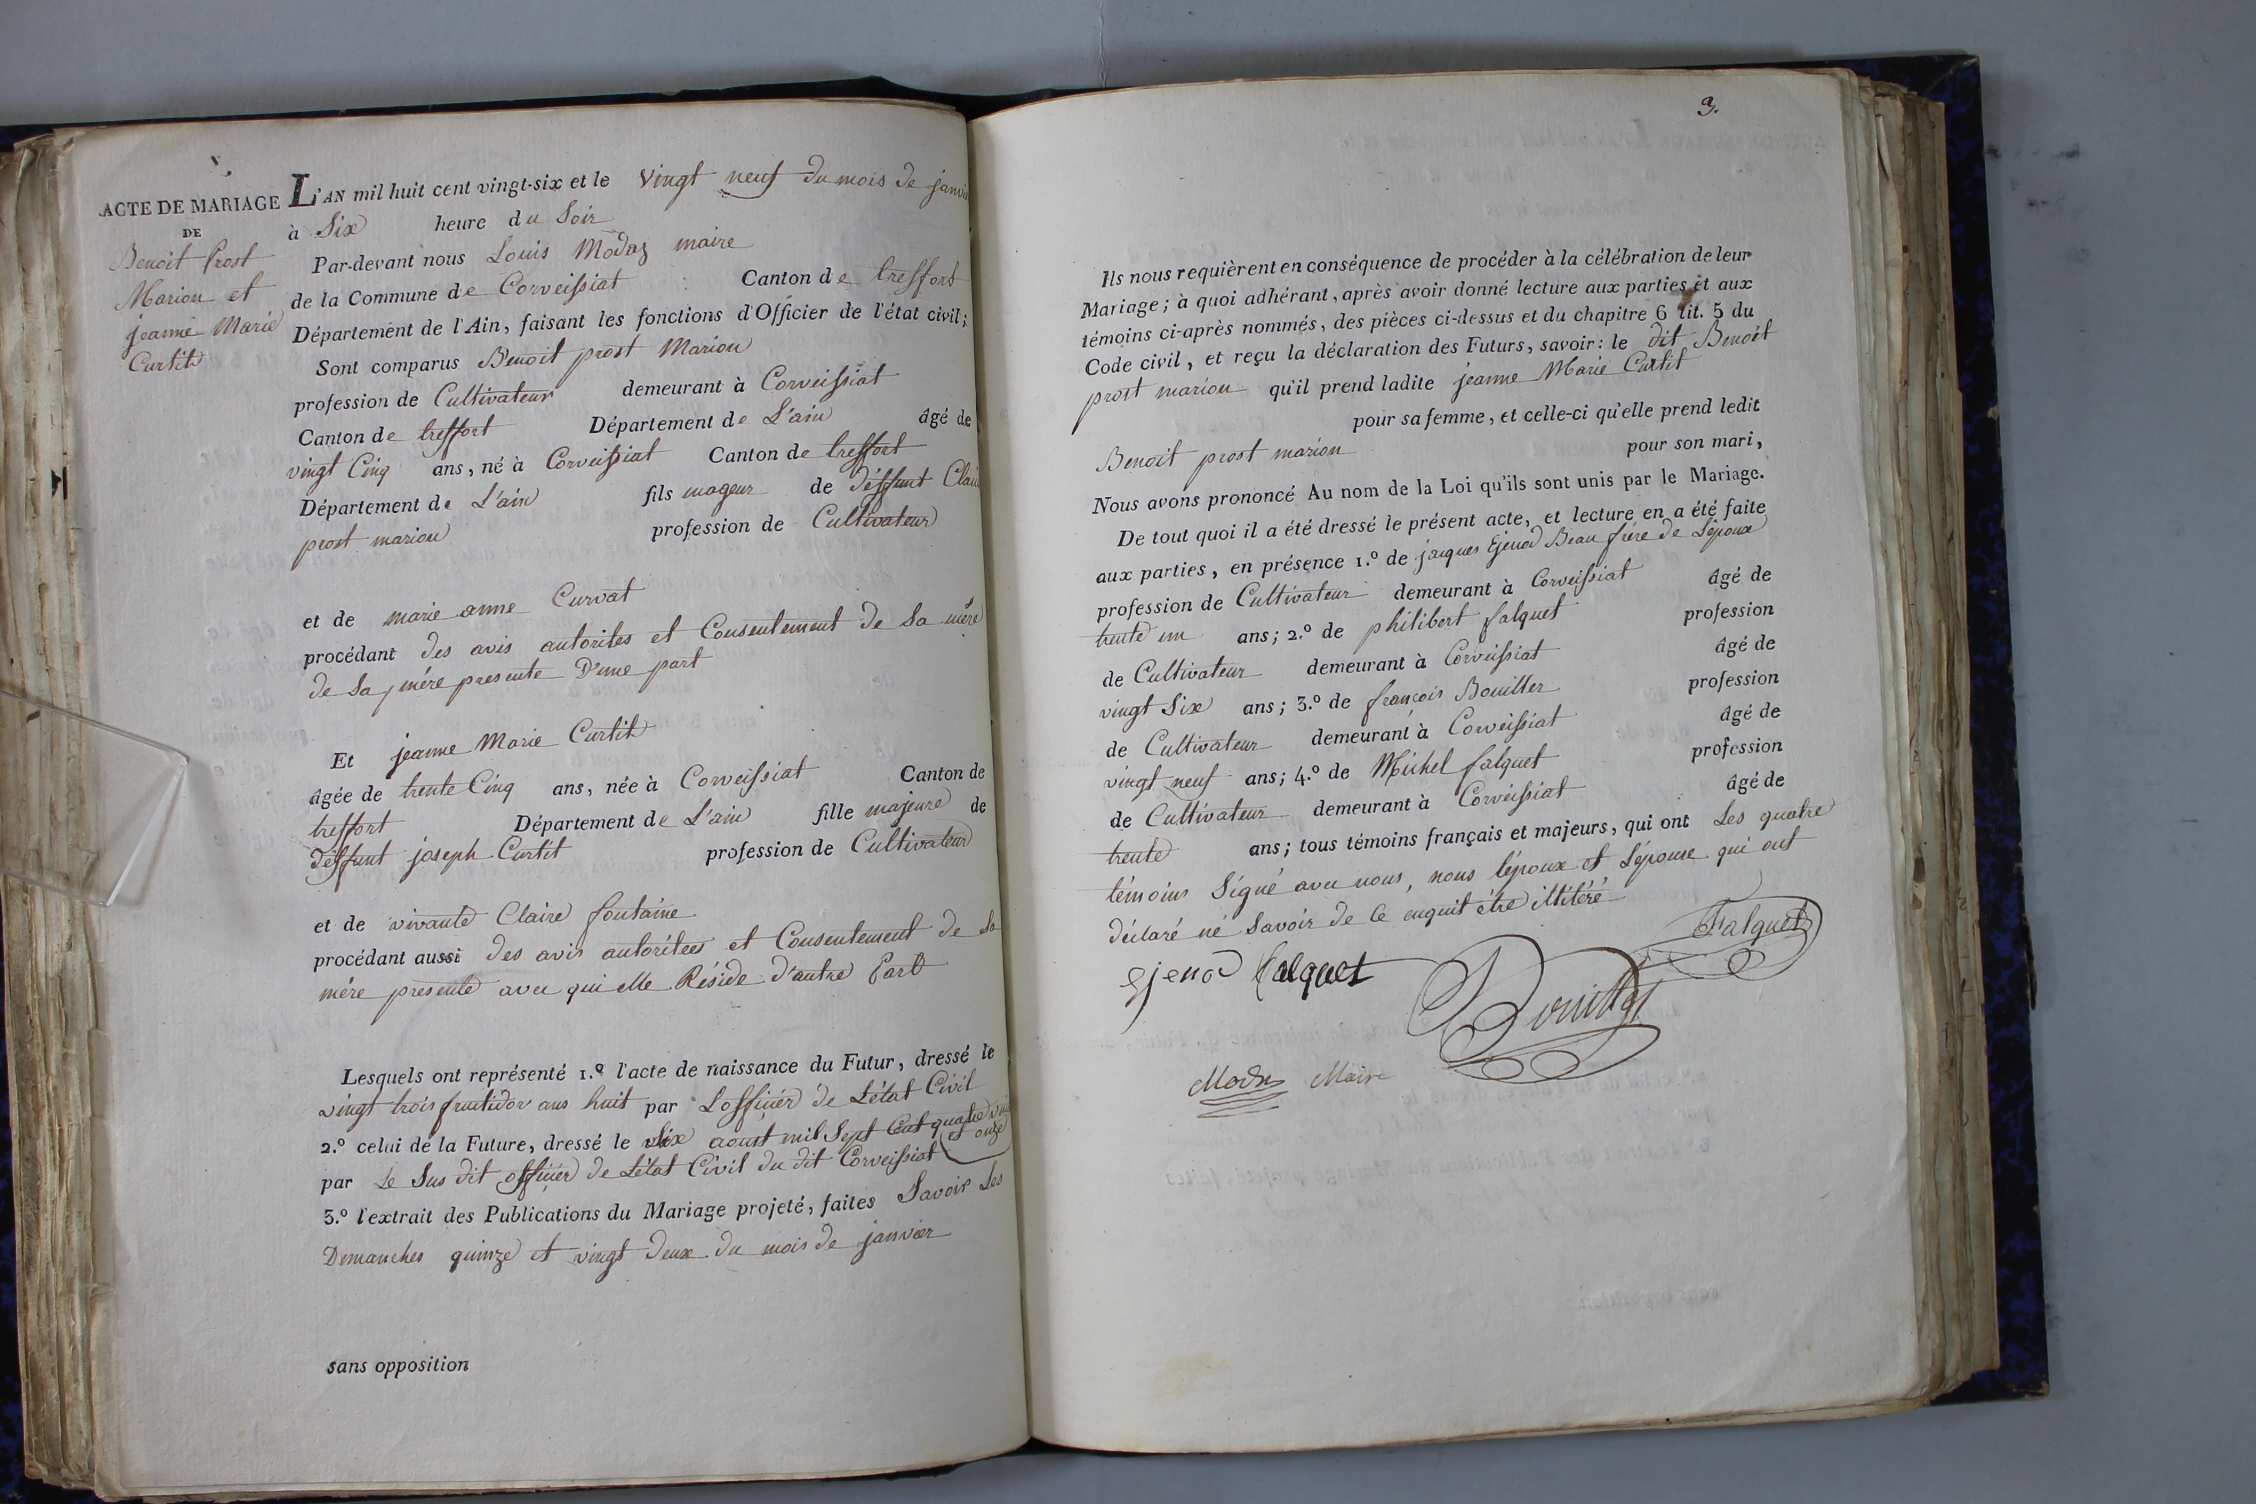 ACTE DE MARIAGE
DE
Benoit Prost
Marion et
jeanne Marie
Curtit
L'AN mil huit cent vingt-six et le vingt neuf du mois de janvier
à Six heure du Soir
Par-devant nous Louis Modas maire
de la Commune de Corveissiat Canton de treffort
Département de l'Ain, faisant les fonctions d'Officier de l'état civil;
Sont comparus Benoit prost Marion
profession de Cultivateur demeurant à Corveissiat
Canton de treffort Département de L'ain âgé de
vingt Cinq ans, né à Corveissiat Canton de treffort
Département de L'ain fils mageur de déffunt Clau
prost marion profession de Cultivateur
et de marie anne Curvat
procédant des avis autorites et Consentement de Sa mère
de Sa mére presente D'une part
Et jeanne Marie Curtit
âgée de trente Cinq ans, née à Corveissiat Canton de
treffort Département de L'ain fille majeure de
déffunt joseph Curtit profession de Cultivateur
et de vivante Claire fontaine
procédant aussi des avis autoritées et Consentement de Sa
mére presente avec qui elle Réside d'autre Part
Lesquels ont représenté 1.º l'acte de naissance du Futur, dressé le
vingt trois fructidor ans huit par Lofficiér de L'état Civil
2.º celui de la Future, dressé le Six aoust mil Sept Cent quatre vin
et onze
par Le Sus dit officiér de L'état Civil du dit Corveissiat
3.º l'extrait des Publications du Mariage projeté, faites Savoir Les
Dimanches quinze et vingt deux du mois de janvier
sans opposition
3.
Ils nous requièrent en conséquence de procéder à la célébration de leur
Mariage; à quoi adhérant, après avoir donné lecture aux parties et aux
témoins ci-après nommés, des pièces ci-dessus et du chapitre 6 tit. 5 du
Code civil, et reçu la déclaration des Futurs, savoir: le dit Benoit
prost marion qu'il prend ladite jeanne Marie Curtit
pour sa femme, et celle-ci qu'elle prend ledit
Benoit prost marion pour son mari,
Nous avons prononcé Au nom de la Loi qu'ils sont unis par le Mariage.
De tout quoi il a été dressé le présent acte, et lecture en a été faite
aux parties, en présence 1.º de jacques Ejenod Beau frére de L'époux
profession de Cultivateur demeurant à Corveissiat âgé de
trente un ans; 2.º de philibert falquet profession
de Cultivateur demeurant à Corveissiat âgé de
vingt Six ans; 3.º de françois Bouiller profession
de Cultivateur demeurant à Corveissiat âgé de
vingt neuf ans; 4.º de Michel falquet profession
de Cultivateur demeurant à Corveissiat âgé de
trente ans; tous témoins français et majeurs, qui ont Les quatre
témoins Signé avec nous, nous L'époux et L'épouse qui ont
déclaré né Savoir de Ce enquit étre illitéré
Falquet
Ejenod falquet
Bouiller
Modas Maire